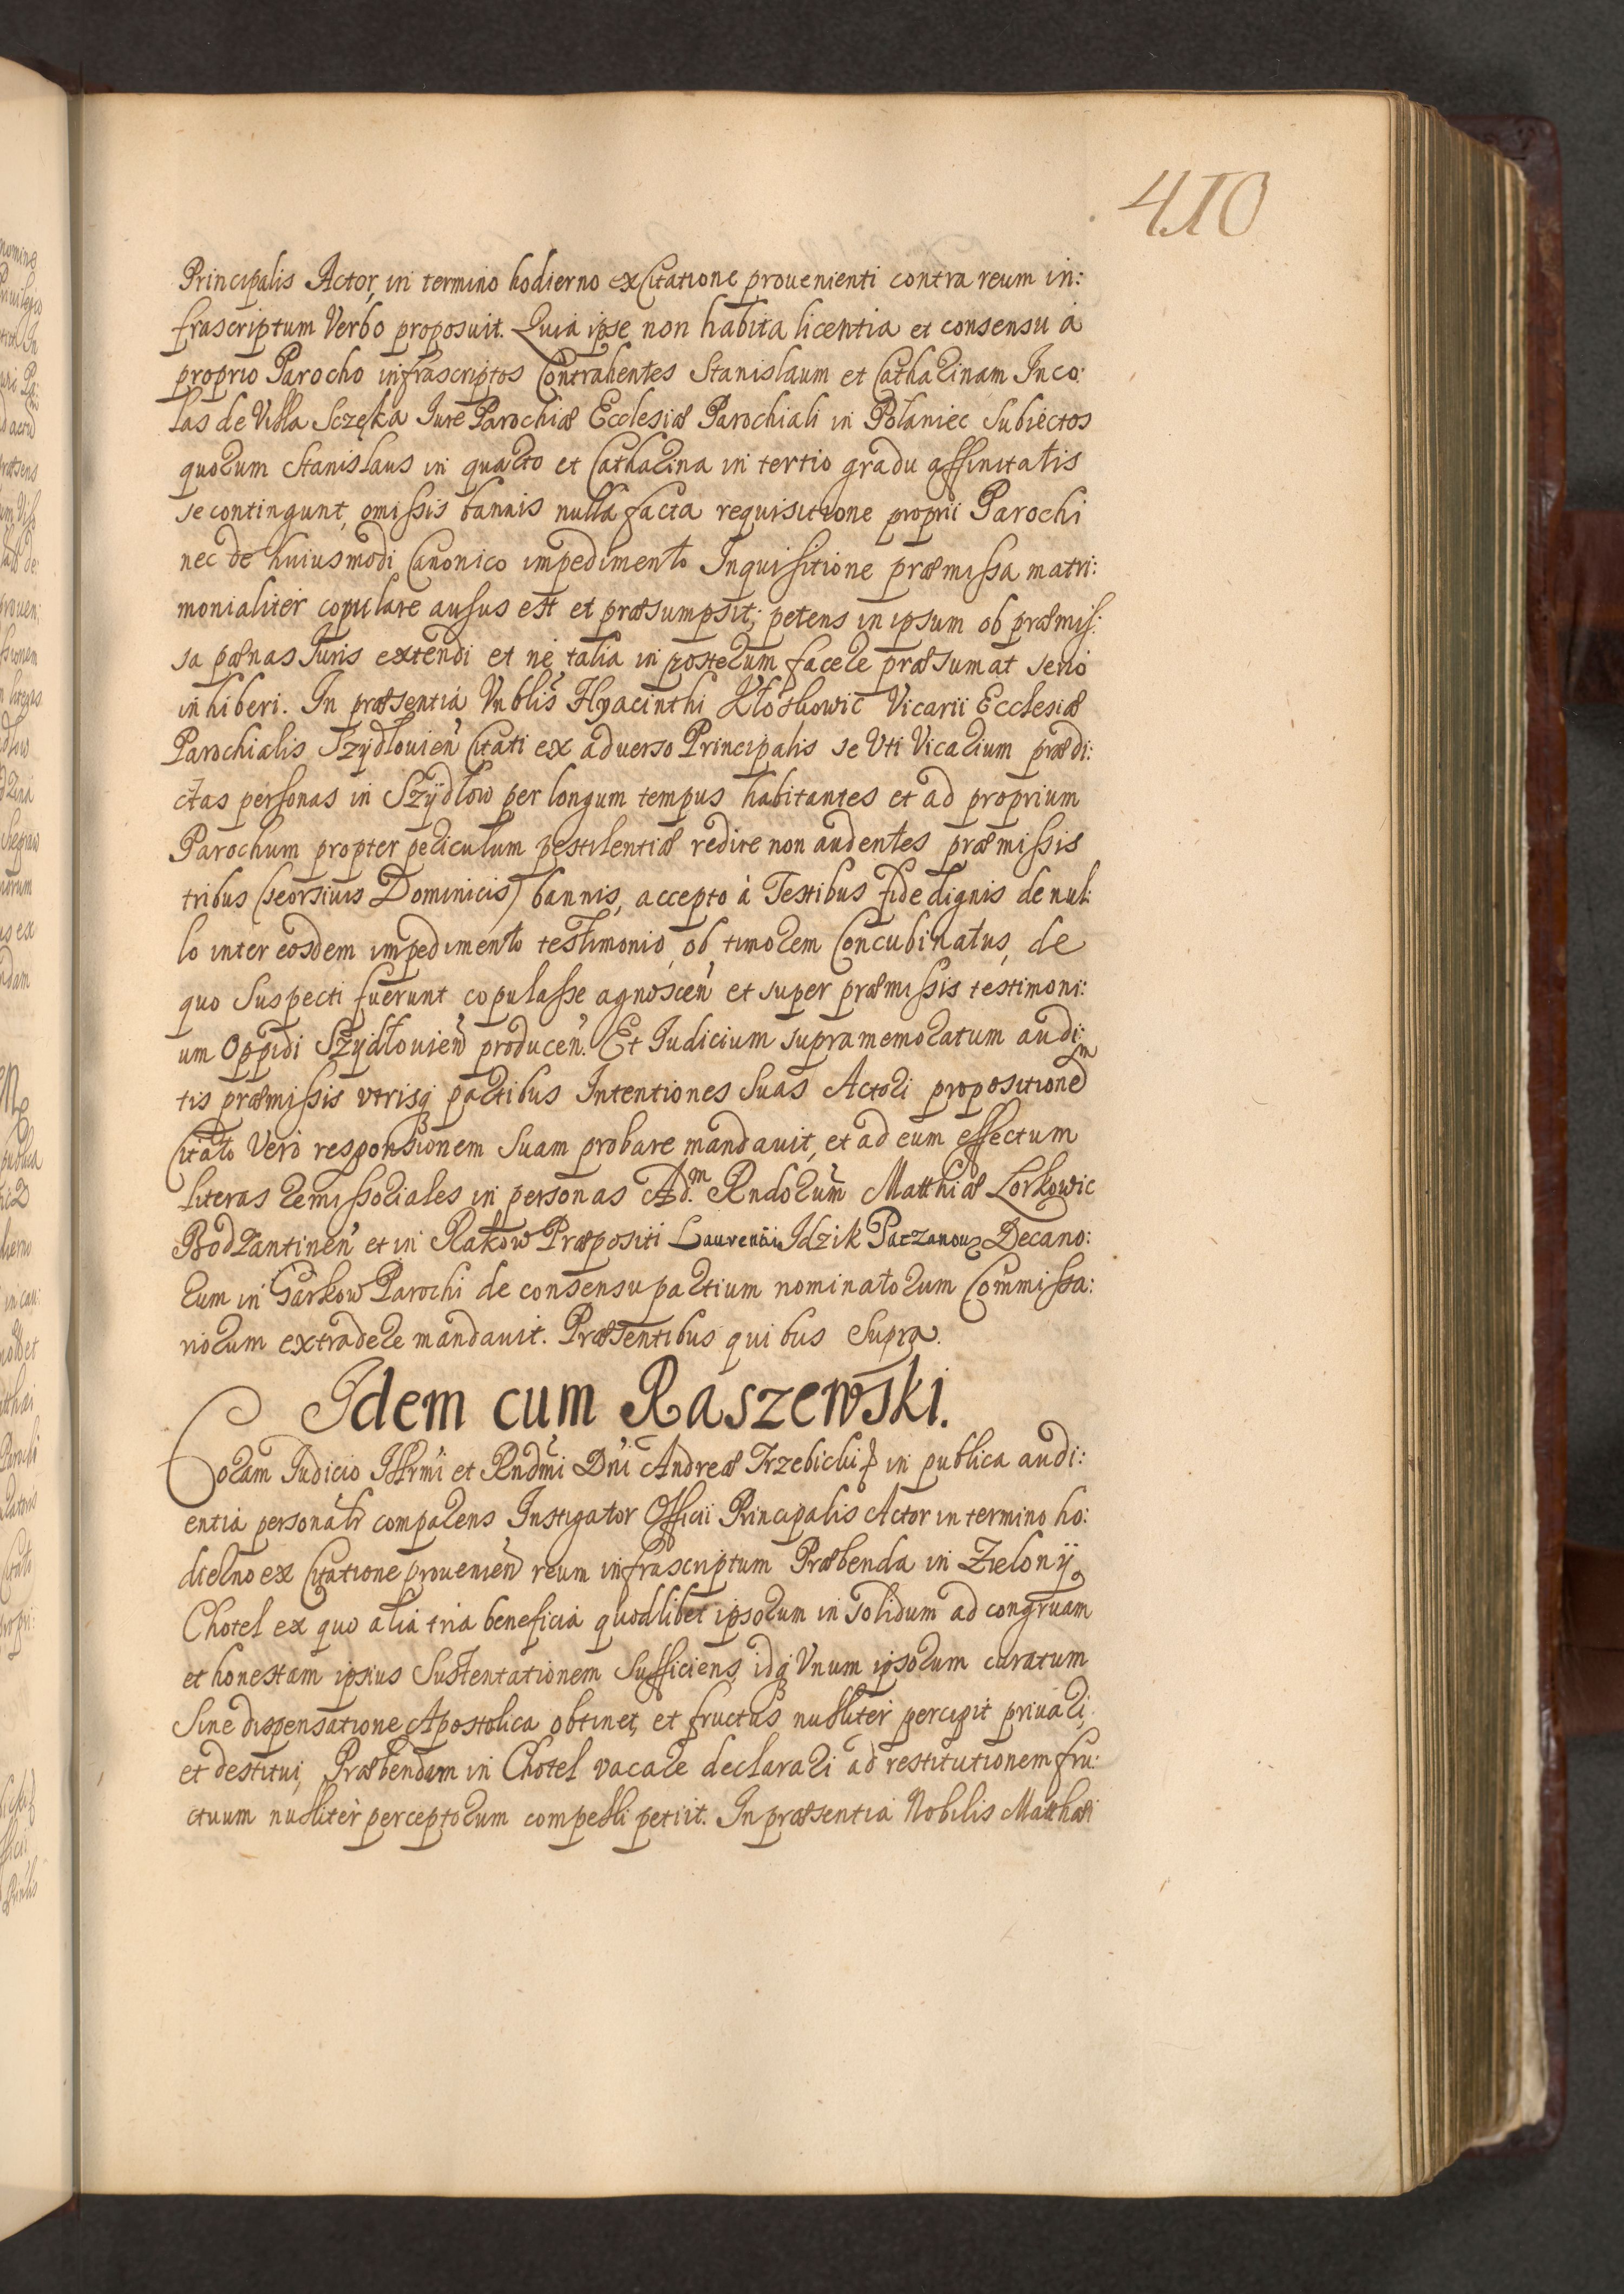 410
Principalis Actor, in termino hodierno ex Citatione prouenienti contra reum in:
frascriptum Verbo proposuit. Quia ipse non habita licentia et consensu à
proprio Parocho infrascriptos Contrahentes Stanislaum et Catharinam Inco:
las de Villa Sczęka Iure Parochiæ Ecclesiæ Parochiali in Polaniec Subiectos
quorum Stanislaus in quarto et Catharina in tertio gradu affinitatis
se contingunt, omissis bannis nulla facta requisitione proprii Parochi
nec de huiusmodi Canonico impedimento Inquisitione præmissa matri:
monialiter copulare ausus est et præsumpsit; petens in ipsum ob præmis:
sa pænas Iuris extendi et ne talia in posterum facere præsumat serio
inhiberi. In præsentia Vnblis Hyacinthi Vicarii Ecclesiæ
Parochialis Szydlouien̄ Citati ex aduerso Principalis se Vti Vicarium prædi:
ctas personas in Szÿdlow per longum tempus habitantes et ad proprium
Parochum propter periculum pestilentiæ redire non audentes præmissis
tribus (seorsiuis Dominicis) bannis, accepto à Testibus fide dignis de nul:
lo inter eosdem impedimento testimonio, ob timorem Concubinatus, de
quo Suspecti fuerunt copulasse agnoscen̄ et super præmissis testimoni:
um Oppidi Szydlouien̄ producen̄. Et Iudicium supramemoratum audi:
tis præmissis vtrisq partibus Intentiones Suas Actori propositionem
Citato Vero responsionem Suam probare mandauit, et ad eum effectum
literas remissoriales in personas Ad.m Rndorum Matthiæ Lorkowic
Bodzantinen̄ et in Rakow Præpositi Laurentii Idzik Paczanou Decano:
rum in Garkow Parochi de consensu partium nominatorum Commissa:
riorum extradere mandauit. Præsentibus quibus Supra.
Idem cum Raszewski.
Coram Iudicio Illrmi et Rndmi Dni Andreæ Trzebicki in publica audi:
entia personalr comparens Instigator Officii Principalis Actor in termino ho:
dierno ex Citatione prouenien̄ reum infrascriptum Præbenda in Zielonÿ
Chotel ex quo alia tria beneficia quodlibet ipsorum in solidum ad congruam
et honestam ipsius Sustentationem Sufficiens, idq Vnum ipsorum curatum
Sine dispensatione Apostolica obtinet, et fructus nulliter percipit priuari,
et destitui, Præbendam in Chotel vacare declarari ad restitutionem fru:
ctuum nulliter perceptorum compelli petiit. In præsentia Nobilis Matthæi